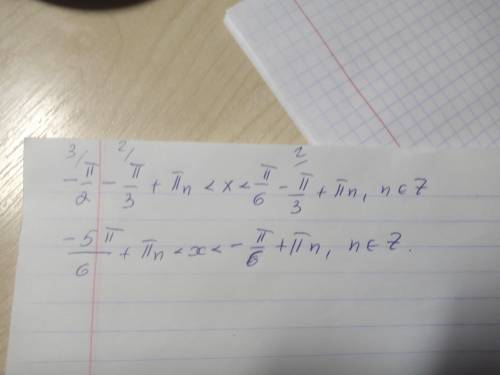 3/ 2/ 2/
-π/2 - π/3 + πn < x < π/6 - π/3 + πn, n ∈ Z
-5π/6 + πn < x < -π/6 + πn, n ∈ Z.